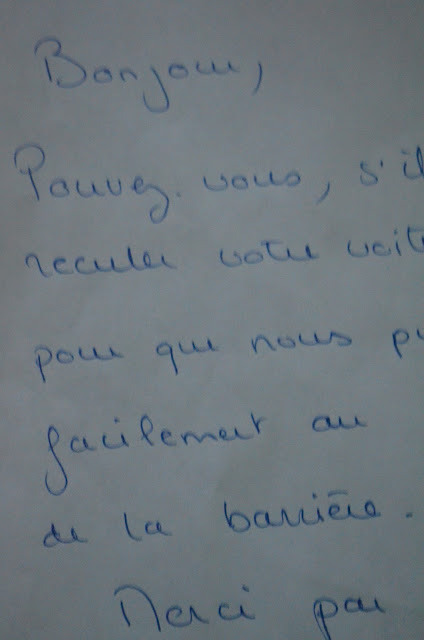 Bonjour,
Pouvez-vous, s'il
reculer votre voit
pour que nous pu
facilement au
de la barrière.
Merci par